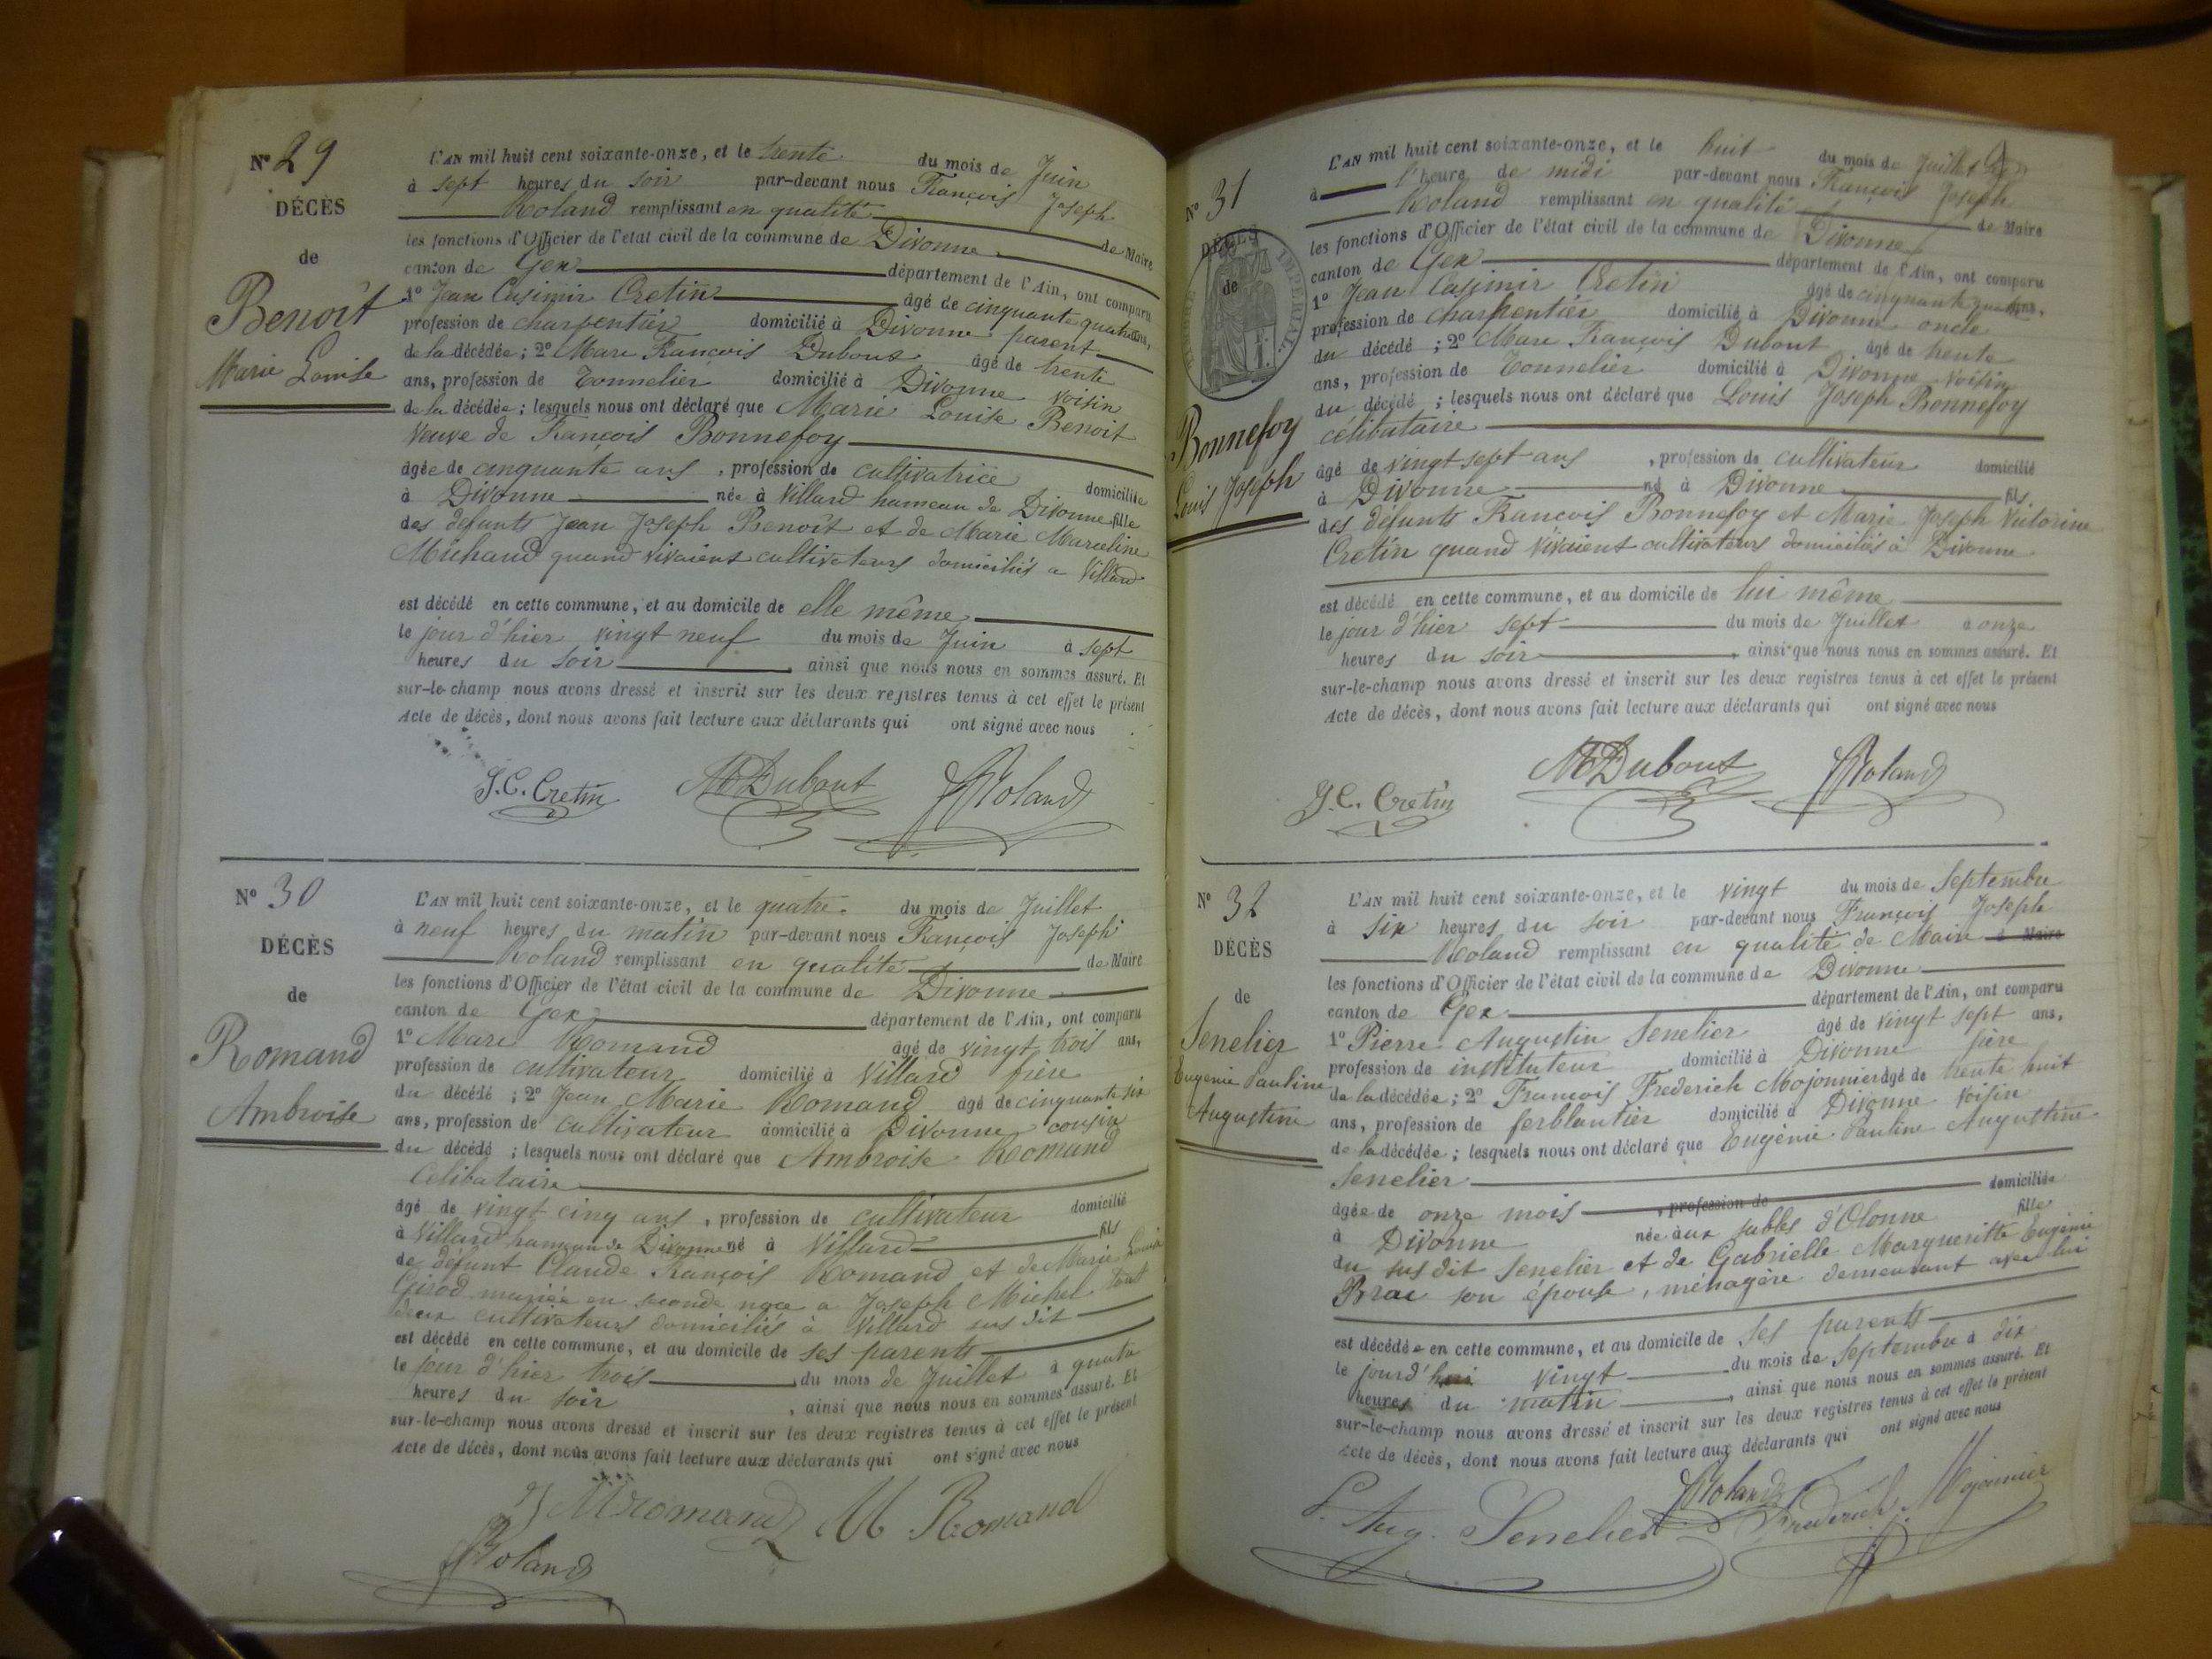 N° 29
DÉCÈS
de
Benoit
Marie Louise
L'AN mil huit cent soixante-onze, et le trente du mois de Juin
à sept heures du soir par-devant nous François Joseph
Roland remplissant en qualité de Maire
les fonctions d'Officier de l'état civil de la commune de Divonne
canton de Gex département de l'Ain, ont comparu
1° Jean Casimir Cretin âgé de cinquante quatre ans,
profession de charpentier domicilié à Divonne parent
de la décédée ; 2° Marc François Dubout âgé de trente
ans, profession de Tonnelier domicilié à Divonne voisin
de la décédée ; lesquels nous ont déclaré que Marie Louise Benoit
veuve de François Bonnefoy
âgée de cinquante ans , profession de cultivatrice domiciliée
à Divonne née à Villard hameau de Divonne fille
des défunts Jean Joseph Benoit et de Marie Marceline
Michaud quand vivaient cultivateurs domiciliés a Villard
est décédé en cette commune, et au domicile de elle même
le jour d'hier vingt neuf du mois de Juin à sept
heures du soir , ainsi que nous nous en sommes assuré. Et
sur-le-champ nous avons dressé et inscrit sur les deux registres tenus à cet effet le présent
Acte de décès, dont nous avons fait lecture aux déclarants qui ont signé avec nous
J. C. Cretin MF Dubout FJRoland
N° 30
DÉCÈS
de
Romand
Ambroise
L'AN mil huit cent soixante-onze, et le quatre du mois de Juillet
à neuf heures du matin par-devant nous François Joseph
Roland remplissant en qualité de Maire
les fonctions d'Officier de l'état civil de la commune de Divonne
canton de Gex département de l'Ain, ont comparu
1° Marc Romand âgé de vingt trois ans,
profession de cultivateur domicilié à Villard frère
du décédé ; 2° Jean Marie Romand âgé de cinquante six
ans, profession de cultivateur domicilié à Divonne cousin
du décédé ; lesquels nous ont déclaré que Ambroise Romand
Célibataire
âgé de vingt cinq ans , profession de cultivateur domicilié
à Villard hameau de Divonne né à Villard fils
de défunt Claude François Romand et de Marie Louise
Girod mariée en seconde noce a Joseph Michel tout
deux cultivateurs domiciliés à Villard sus dit
est décédé en cette commune, et au domicile de ses parents
le jour d'hier trois du mois de Juillet à quatre
heures du soir , ainsi que nous nous en sommes assuré. Et
sur-le-champ nous avons dressé et inscrit sur les deux registres tenus à cet effet le présent
Acte de décès, dont nous avons fait lecture aux déclarants qui ont signé avec nous
romand M Romand
FJRoland
N° 31
DÉCÈS
de
IMPERIAL
Bonnefoy
Louis Joseph
L'AN mil huit cent soixante-onze, et le huit du mois de Juillet
à l'heure de midi par-devant nous François Joseph
Roland remplissant en qualité de Maire
les fonctions d'Officier de l'état civil de la commune de Divonne
canton de Gex département de l'Ain, ont comparu
1° Jean Casimir Cretin âgé de cinquante quatre ans,
profession de charpentier domicilié à Divonne oncle
du décédé ; 2° Marc François Dubout âgé de trente
ans, profession de Tonnelier domicilié à Divonne voisin
du décédé ; lesquels nous ont déclaré que Louis Joseph Bonnefoy
célibataire
âgé de vingt sept ans , profession de cultivateur domicilié
à Divonne né à Divonne fils
des défunts François Bonnefoy et Marie Joseph Victorine
Cretin quand vivaient cultivateurs domiciliés à Divonne
est décédé en cette commune, et au domicile de lui même
le jour d'hier sept du mois de Juillet à onze
heures du soir , ainsi que nous nous en sommes assuré. Et
sur-le-champ nous avons dressé et inscrit sur les deux registres tenus à cet effet le présent
Acte de décès, dont nous avons fait lecture aux déclarants qui ont signé avec nous
J. C. Cretin MF Dubout FJRoland
N° 32
DÉCÈS
de
Senelier
Eugénie Pauline
Augustine
L'AN mil huit cent soixante-onze, et le vingt du mois de Septembre
à six heures du soir par-devant nous François Joseph
Roland remplissant en qualité de Maire de Maire
les fonctions d'Officier de l'état civil de la commune de Divonne
canton de Gex département de l'Ain, ont comparu
1° Pierre Augustin Senelier âgé de vingt sept ans,
profession de instituteur domicilié à Divonne père
de la décédée ; 2° François Frederich Mojonnier âgé de trente huit
ans, profession de ferblantier domicilié à Divonne voisin
de la décédée ; lesquels nous ont déclaré que Eugénie Pauline Augustine
Senelier
âgée de onze mois , profession de domiciliée
à Divonne née aux sables d'Olonne fille
du sus dit Senelier et de Gabrielle Margueritte Eugénie
Brac son épouse, ménagère demeurant avec lui
est décédée en cette commune, et au domicile de ses parents
le jour d'hui vingt du mois de Septembre à dix
heures du matin , ainsi que nous nous en sommes assuré. Et
sur-le-champ nous avons dressé et inscrit sur les deux registres tenus à cet effet le présent
Acte de décès, dont nous avons fait lecture aux déclarants qui ont signé avec nous
P. Aug. Senelier FJRoland Frederich Mojonnier